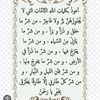 أعوذ بكلمات الله التامات التي لا
يجاوزهن بر ولا فاجر ، من شر ما
خلق ، وذرأ وبرأ ، ومن شر ما
ينزل من السماء ، ومن شر ما
يعرج فيها ، ومن شر ما ذرأ في
الأرض ، ومن شر ما يخرج منها ،
ومن شر فتن الليل والنهار ، و
من شر كل طارق إلا طارقا يطرق
بخير يا رحمن